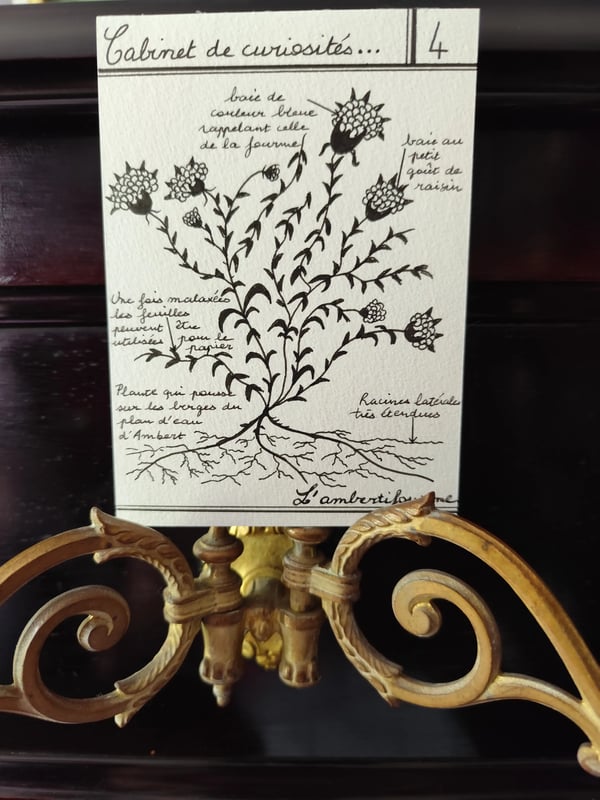 Cabinet de curiosités...
4
baie de
couleur bleue
rappelant celle
de la fourme
baie au
petit
goût de
raisin
Une fois malaxées
les feuilles
peuvent être
utilisées pour le
papier
Plante qui pousse
sur les berges du
plan d'eau
d'Ambert
Racines latérales
très étendues
L'ambertifourme